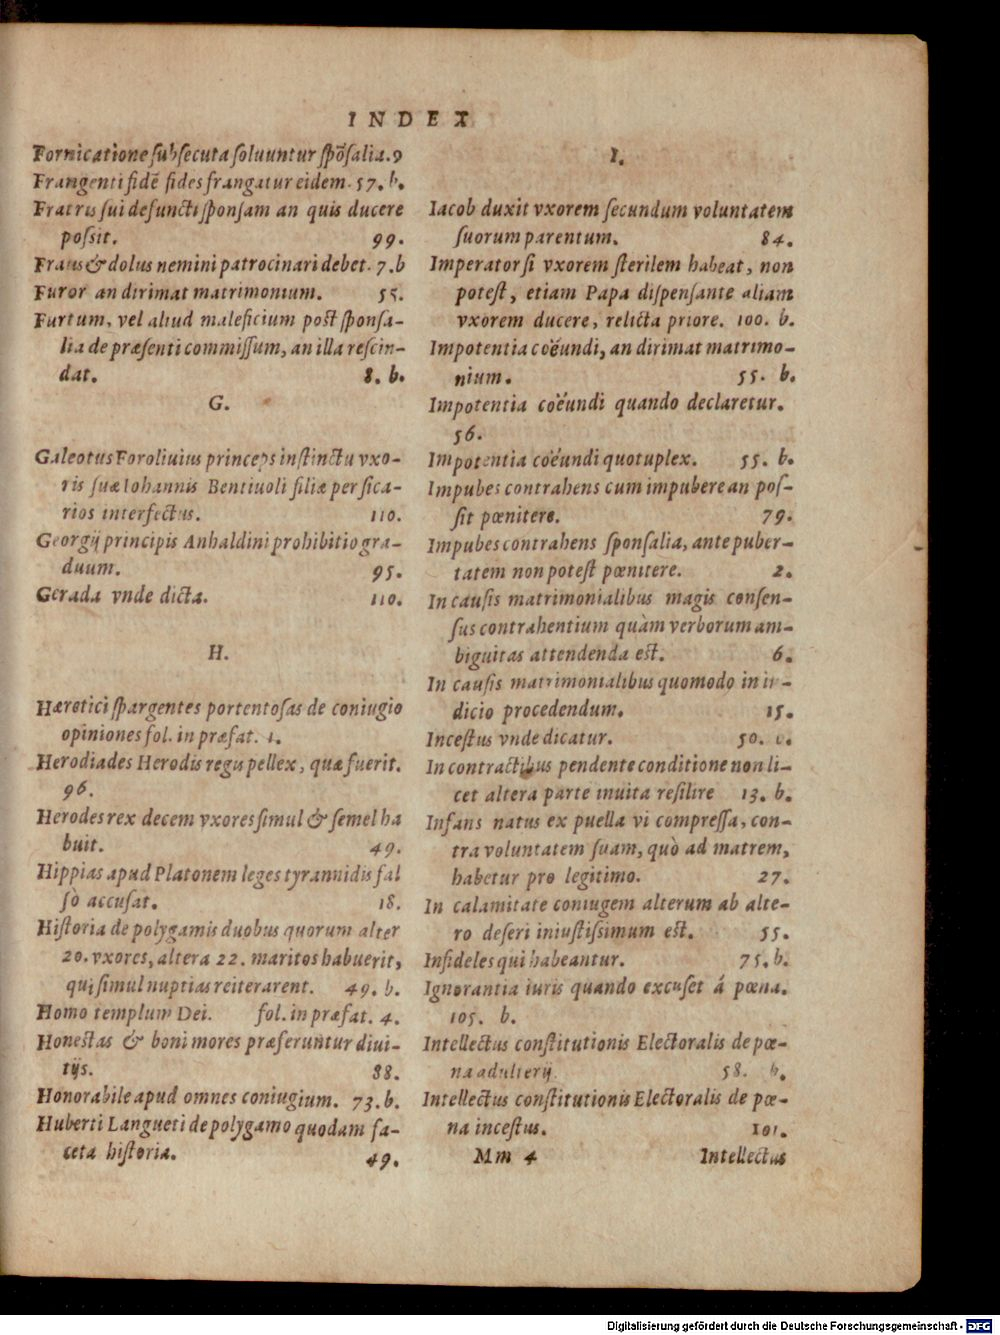 INDEX
Fornicatione subsecuta soluuntur spōsalia. 9
Frangenti fidē fides frangatur eidem. 57. b.
Fratris sui defuncti sponsam an quis ducere
possit. 99.
Fraus & dolus nemini patrocinari debet. 7. b
Furor an dirimat matrimonium. 55.
Furtum, vel aliud maleficium post sponsa-
lia de præsenti commissum, an illa rescin-
dat. 8. b.
G.
Galeotus Foroliuius princeps instinctu vxo-
ris suæ Iohannis Bentiuoli filiæ per sica-
rios interfectus. 110.
Georgij principis Anhaldini prohibitio gra-
duum. 95.
Gerada vnde dicta. 110.
H.
Hæretici spargentes portentosas de coniugio
opiniones fol. in præfat. 1.
Herodiades Herodis regis pellex, quæ fuerit.
96.
Herodes rex decem vxores simul & semel ha
buit. 49.
Hippias apud Platonem leges tyrannidis fal
sò accusat. 18.
Historia de polygamis duobus quorum alter
20. vxores, altera 22. maritos habuerit,
qui simul nuptias reiterarent. 49. b.
Homo templum Dei. fol. in præfat. 4.
Honestas & boni mores præferuntur diui-
tijs. 88.
Honorabile apud omnes coniugium. 73. b.
Huberti Langueti de polygamo quodam fa-
ceta historia. 49.
I.
Iacob duxit vxorem secundum voluntatem
suorum parentum. 84.
Imperator si vxorem sterilem habeat, non
potest, etiam Papa dispensante aliam
vxorem ducere, relicta priore. 100. b.
Impotentia coëundi, an dirimat matrimo-
nium. 55. b.
Impotentia coëundi quando declaretur.
56.
Impotentia coëundi quotuplex. 55. b.
Impubes contrahens cum impubere an pos-
sit pœnitere. 79.
Impubes contrahens sponsalia, ante puber-
tatem non potest pœnitere. 2.
In causis matrimonialibus magis consen-
sus contrahentium quàm verborum am-
biguitas attendenda est. 6.
In causis matrimonialibus quomodo in iu-
dicio procedendum. 15.
Incestus vnde dicatur. 50.
In contractibus pendente conditione non li-
cet altera parte inuita resilire 13. b.
Infans natus ex puella vi compressa, con-
tra voluntatem suam, quò ad matrem,
habetur pro legitimo. 27.
In calamitate coniugem alterum ab alte-
ro deseri iniustissimum est. 55.
Infideles qui habeantur. 75. b.
Ignorantia iuris quando excuset á pœna.
105. b.
Intellectus constitutionis Electoralis de pœ-
na adulterij. 58. b.
Intellectus constitutionis Electoralis de pœ-
na incestus. 101.
Mm 4 Intellectus
Digitalisierung gefördert durch die Deutsche Forschungsgemeinschaft - DFG